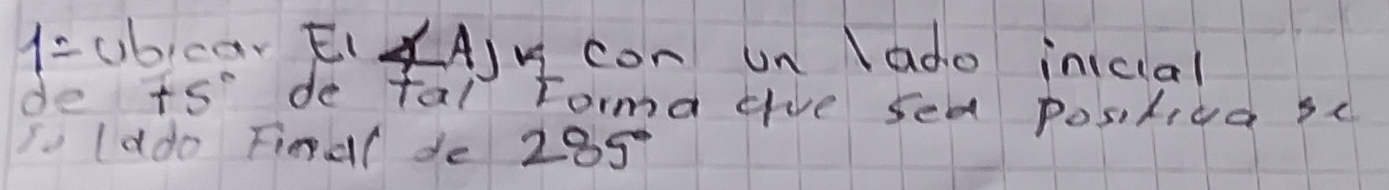 1= Ubicar El ∡A con un lado inicial
de +5° de tal Forma que sea positiva
lado Final de 285°